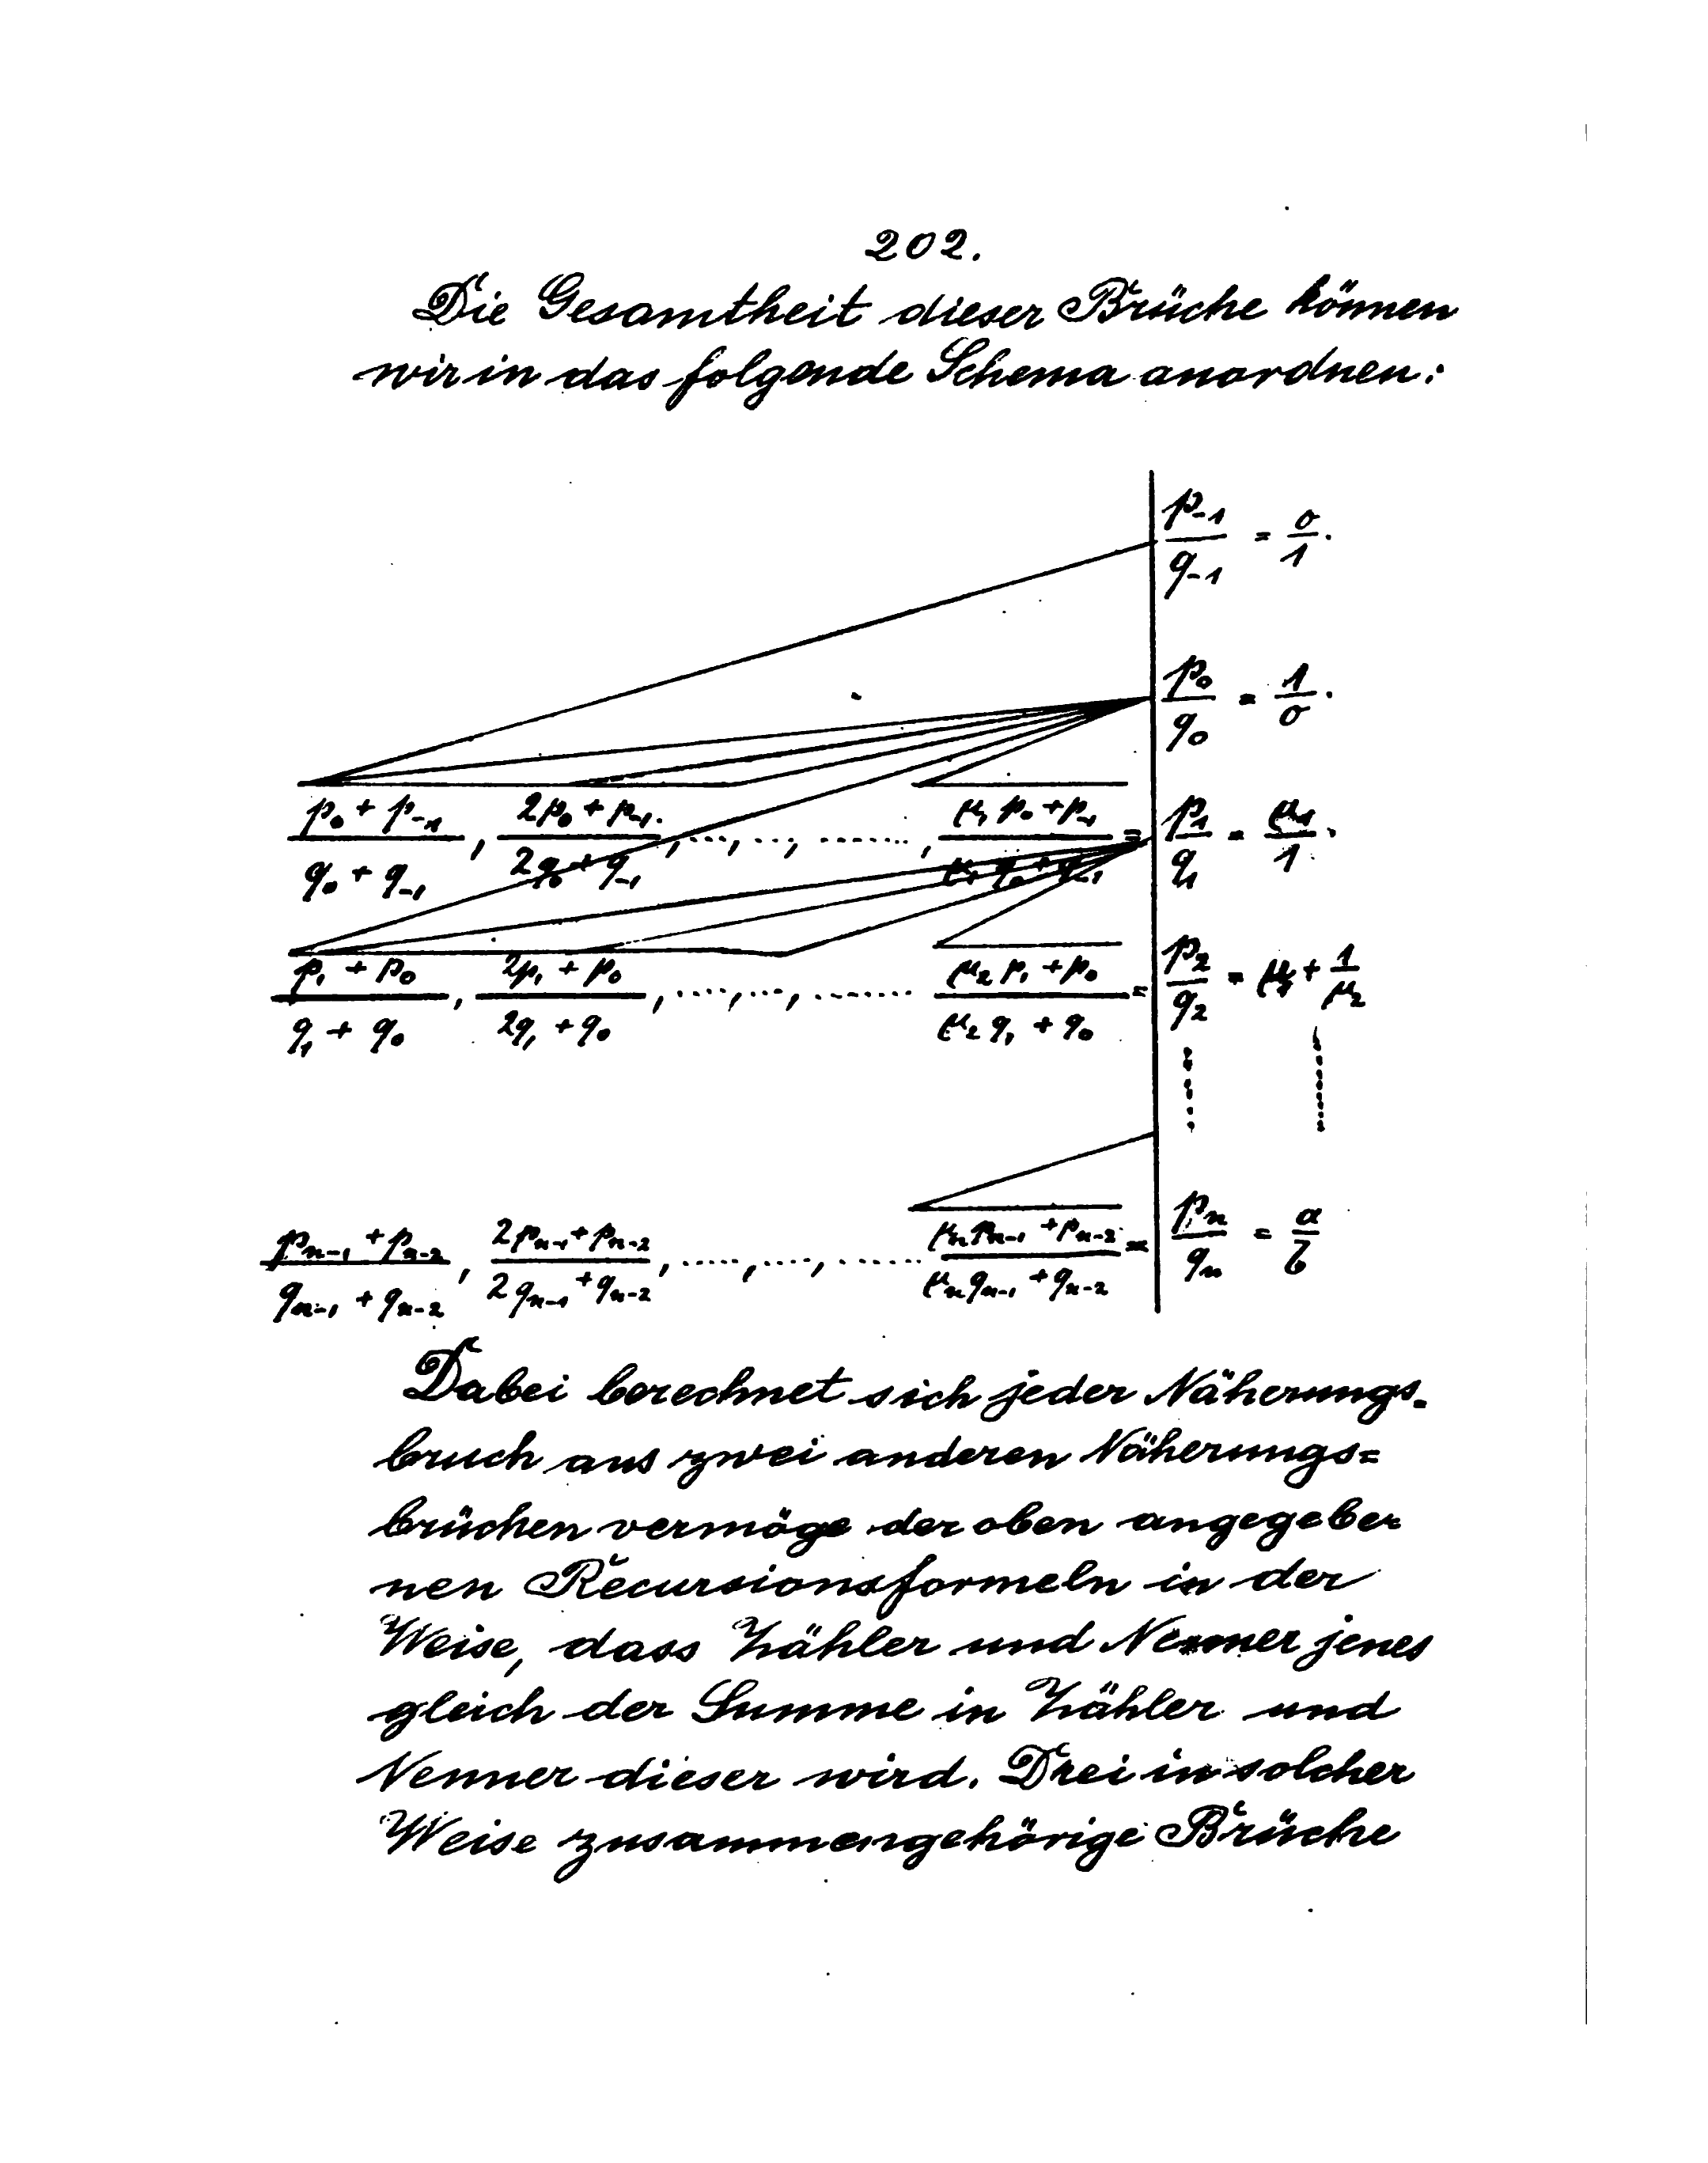 202.
Die Gesamtheit dieser Brüche können
wir in das folgende Schema anordnen:
p₋₁/q₋₁ = 0/1.
p₀/q₀ = 1/0.
(p₀ + p₋₁)/(q₀ + q₋₁), (2p₀ + p₋₁)/(2q₀ + q₋₁), ..., ..., ....... , (μ₁p₀ + p₋₁)/(μ₁q₀ + q₋₁) = p₁/q₁ = μ₁/1.
(p₁ + p₀)/(q₁ + q₀), (2p₁ + p₀)/(2q₁ + q₀), ....., ..., ....... (μ₂p₁ + p₀)/(μ₂q₁ + q₀) = p₂/q₂ = μ₁ + 1/μ₂
(pₙ₋₁ + pₙ₋₂)/(qₙ₋₁ + qₙ₋₂), (2pₙ₋₁ + pₙ₋₂)/(2qₙ₋₁ + qₙ₋₂), ....., ..., ....... (μₙpₙ₋₁ + pₙ₋₂)/(μₙqₙ₋₁ + qₙ₋₂) = pₙ/qₙ = a/b
Dabei berechnet sich jeder Näherungs-
bruch aus zwei anderen Näherungs=
brüchen vermöge der oben angegebe-
nen Recursionsformeln in der
Weise, dass Zähler und Nenner jenes
gleich der Summe in Zähler und
Nenner dieser wird. Drei in solcher
Weise zusammengehörige Brüche